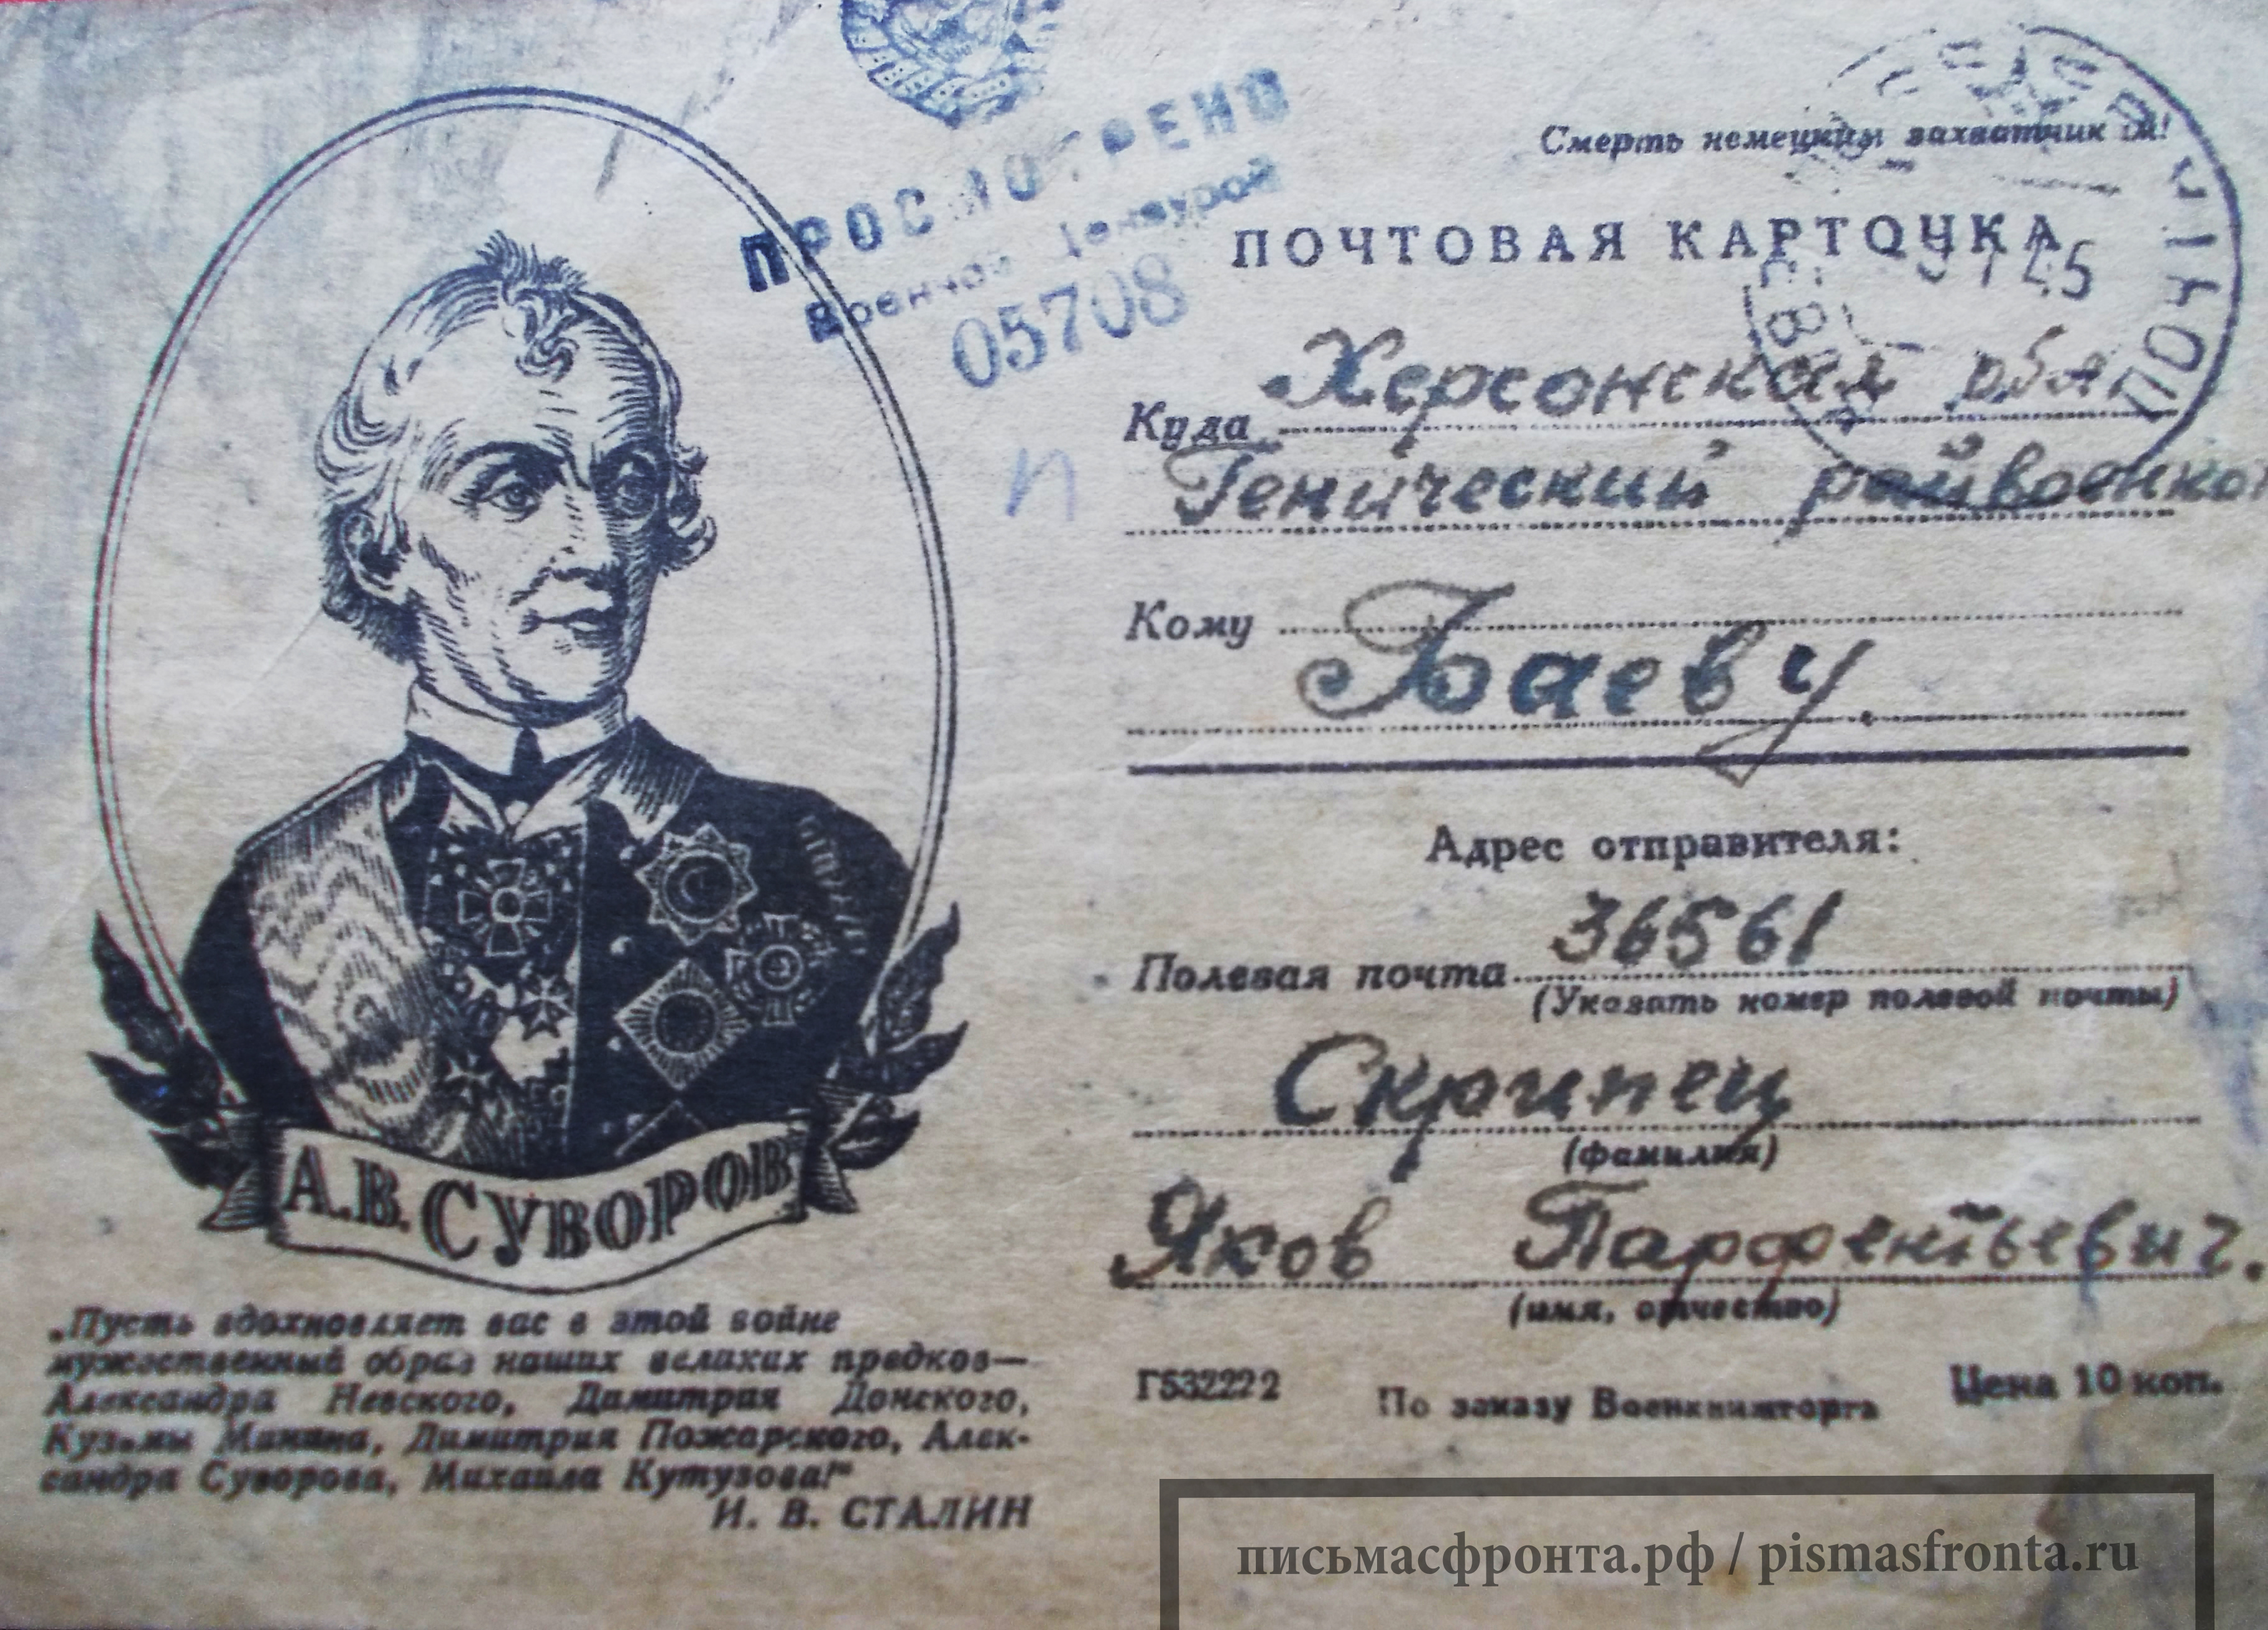 ПРОСМОТРЕНО
Военной Цензурой
05708
Смерть немецким захватчикам!
ПОЧТОВАЯ КАРТОЧКА
45
ПОЧТ
Куда Херсонская обл
Генический райвоенко
п
Кому
Баеву.
Адрес отправителя:
Полевая почта 36561
(Указать номер полевой почты)
Скрипец
(фамилия)
Яков Парфентьевич.
(имя, отчество)
Г532222 По заказу Военкнижторга Цена 10 коп.
А.В. СУВОРОВ
„Пусть вдохновляет вас в этой войне
мужественный образ наших великих предков—
Александра Невского, Димитрия Донского,
Кузьмы Минина, Димитрия Пожарского, Алек-
сандра Суворова, Михаила Кутузова!“
И. В. СТАЛИН
письмасфронта.рф / pismasfronta.ru